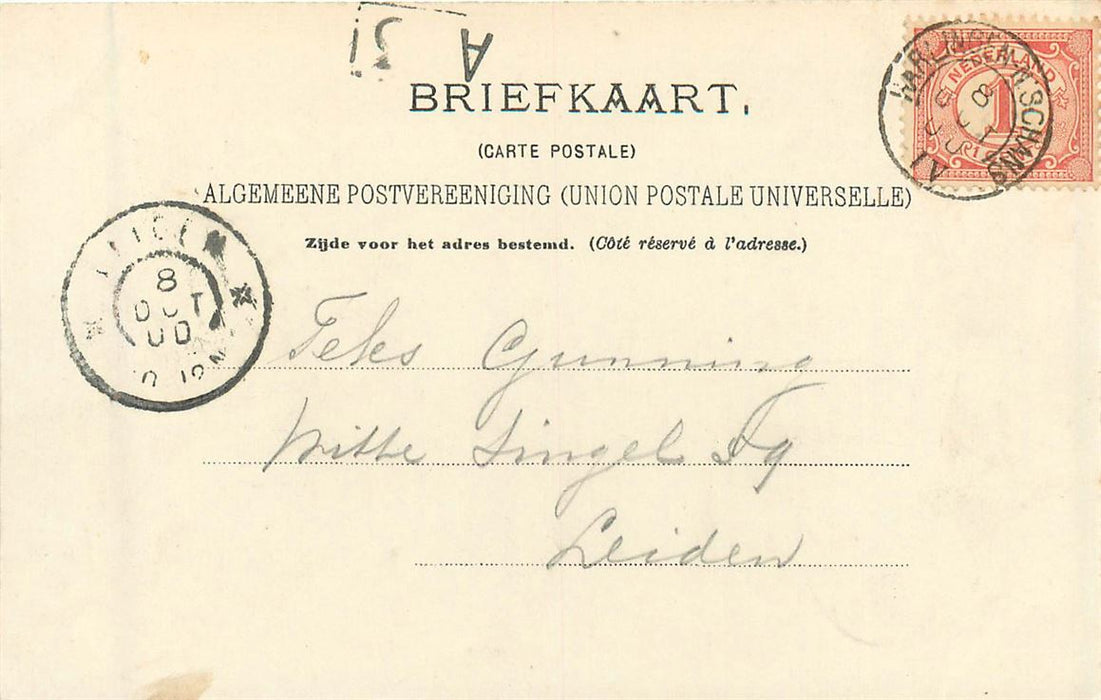 A
51
BRIEFKAART.
(CARTE POSTALE)
ALGEMEENE POSTVEREENIGING (UNION POSTALE UNIVERSELLE)
Zijde voor het adres bestemd. (Côté réservé à l'adresse.)
NEDERLAND
1
8
OCT
00
Gunning
Witte Singel
Leiden